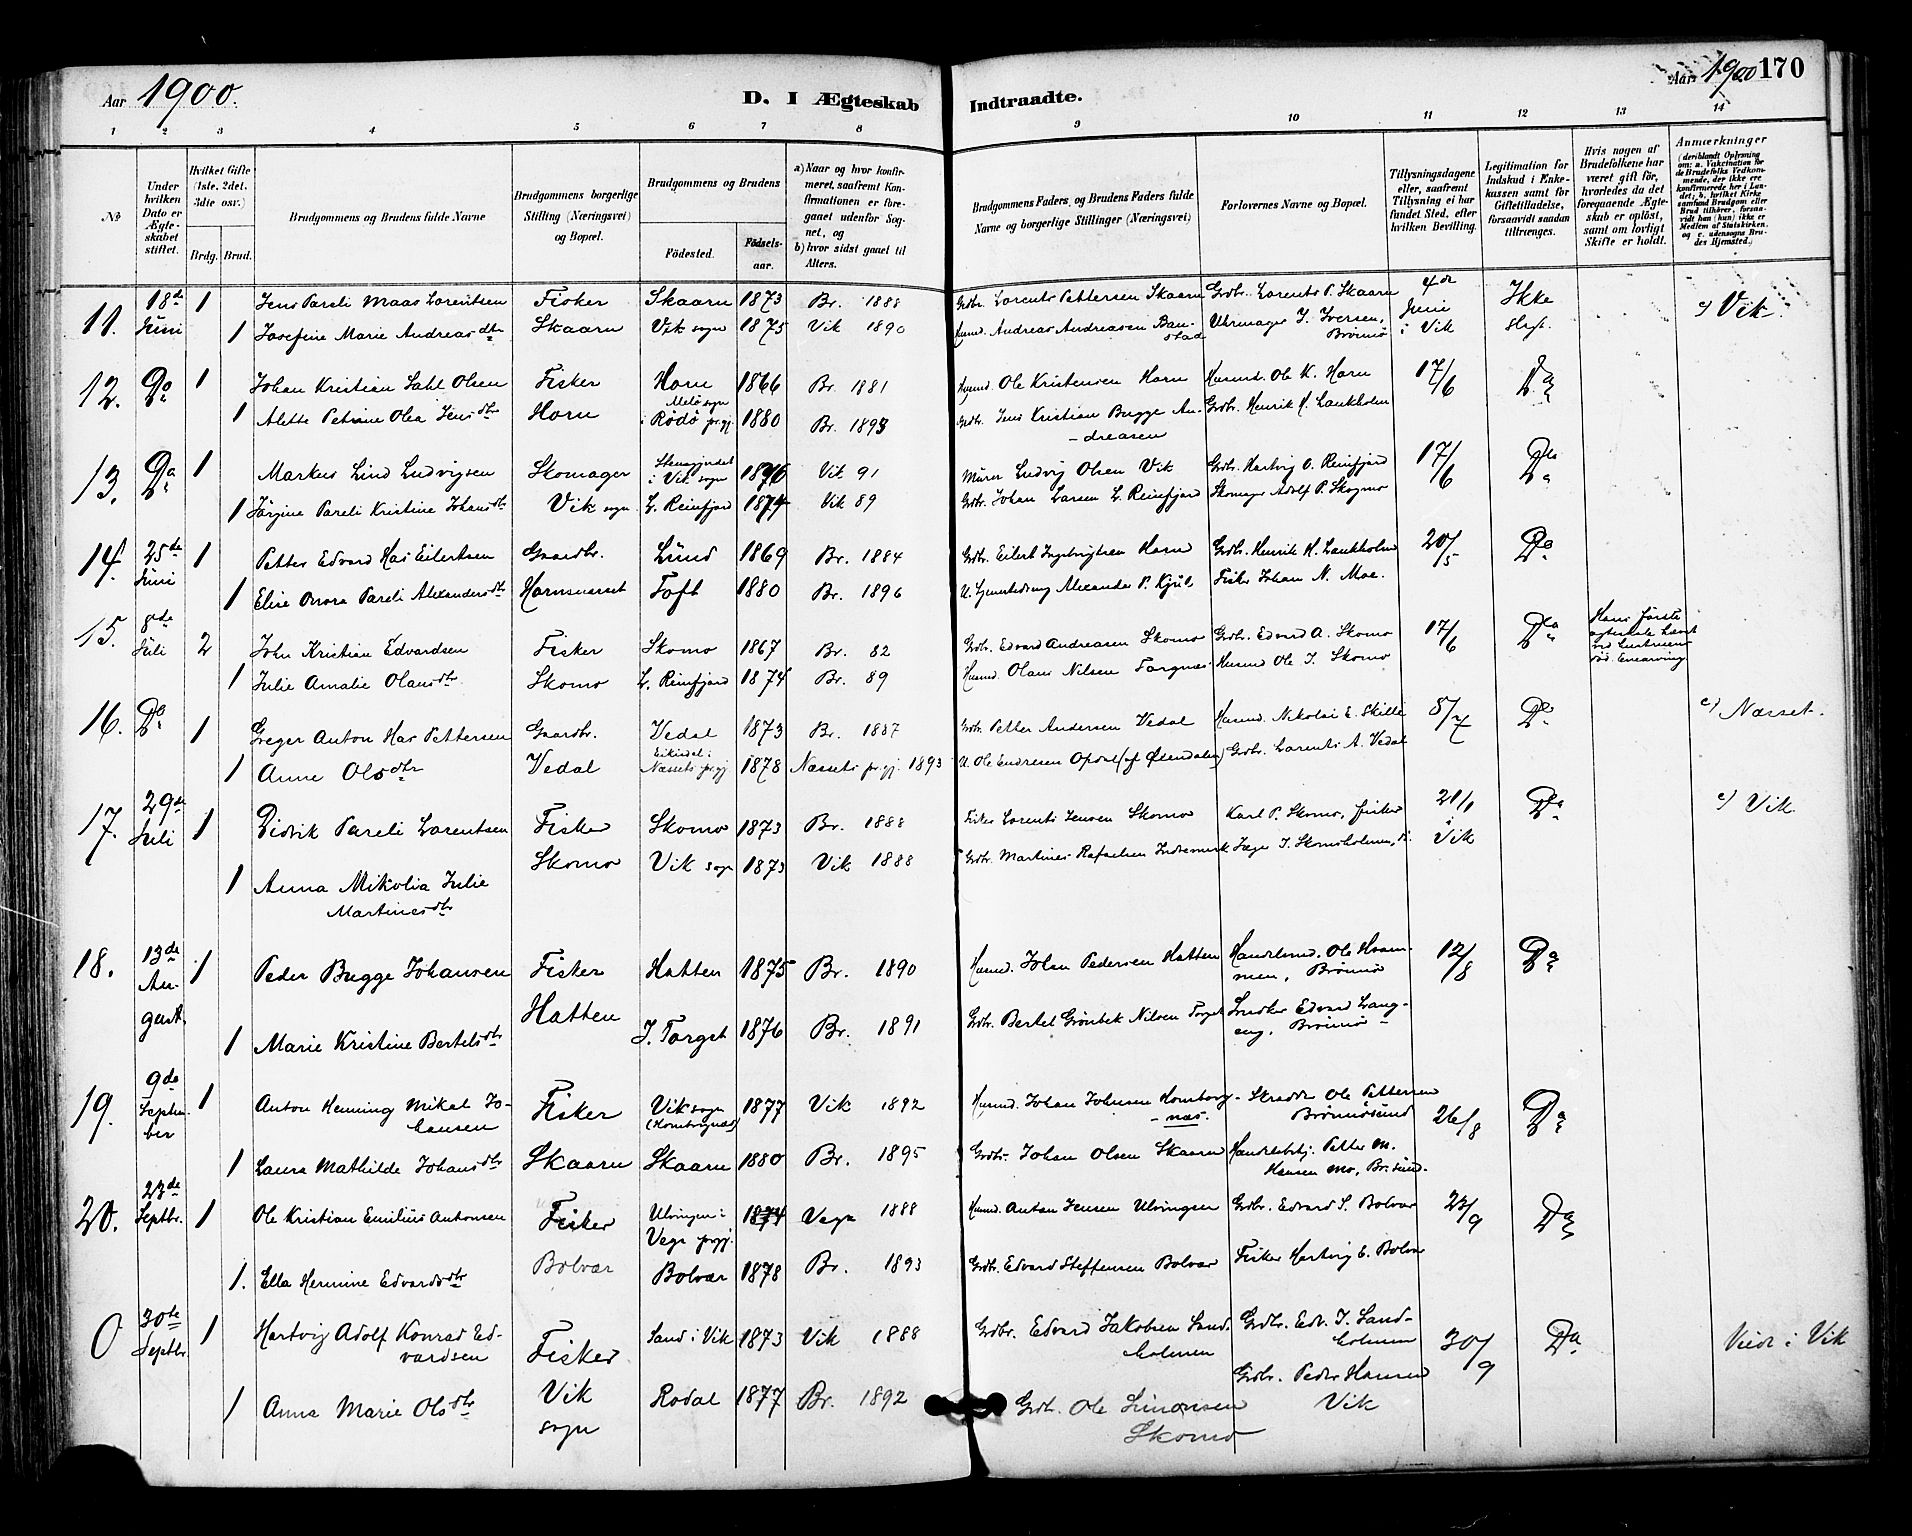 Aar 1900.
D. I Ægteskab Indtraadte.
Aar 1900 170
1 2 3 4 5 6 7 8 9 10 11 12 13 14
No
Under hvilken Dato er Ægteskabet stiftet.
Hvilket Gifte (1ste, 2det, 3die osv.)
Brdg. Brud.
Brudgommens og Brudens fulde Navne
Brudgommens borgerlige Stilling (Næringsvei) og Bopæl.
Brudgommens og Brudens
Fødested. Fødsels-aar.
a) Naar og hvor konfirmeret, saafremt Konfirmationen er foregaaet udenfor Sognet, og
b) hvor sidst gaaet til Alters.
Brudgommens Faders og Brudens Faders fulde Navne og borgerlige Stillinger (Næringsvei)
Forlovernes Navne og Bopæl.
Tillysningsdagene eller, saafremt Tillysning ei har fundet Sted, efter hvilken Bevilling.
Legitimation for Indskud i Enkekassen samt for Giftetilladelse, forsaavidt saadan tiltrænges.
Hvis nogen af Brudefolkene har været gift før, hvorledes da det foregaaende Ægteskab er opløst, samt om lovligt Skifte er holdt.
Anmærkninger
(deriblandt Oplysning om: a. Vakcination for de Brudefolks Vedkommende, der ikke ere konfirmerede her i Landet, b. hvilket Kirkesamfund Brudgom eller Brud tilhører, forsaavidt han (hun) ikke er Medlem af Statskirken, og c. udensogns Brudes Hjemsted.)
11. 18de Juni 1 Jens Pareli Maas Lorentsen Fisker Skaarn 1873 Br. 1888 Grdbr. Lorents Pettersen Skaarn Grdbr. Lorents P. Skaarn 4de Juni i Vik Ikke c) Vik.
1 Josefine Marie Andreasdtr Skaarn Vik sogn 1875 Vik 1890 Husmd. Andreas Andreasen Baustad Uhrmager J. Iversen, Brønnø
12. Do 1 Johan Kristian Dahl Olsen Fisker Horn 1866 Br. 1881 Husmd. Ole Kristensen Horn Husmd. Ole K. Horn 17/6 Do
1 Alette Petrine Olea Jensdtr Horn Melö sogn i Rödö prgj. 1880 Br. 1895 Grdbr. Jens Kristian Bugge Andreasen Grdbr. Henrik H. Laukholm
13. Do 1 Markus Lind Ludvigsen Skomager i Vik sogn 1876 Vik 91 Murer Ludvig Olsen Vik Grdbr. Hartvig O. Reinfjord 17/6 Do
1 Jørgine Pareli Kristine Johansdtr Vik sogn L. Reinfjord 1874 Vik 89 Grdbr. Johan Larsen L. Reinfjord Skomager Adolf P. Skogmo
14. 25de Juni 1 Petter Edvard Has Eilertsen Gaardbr. Lund 1869 Br. 1884 Grdbr. Eilert Ingebrigtsen Horn Grdbr. Henrik H. Laukholm 20/5 Do
1 Elise Onora Pareli Alexandersdtr Hornsværet Toft 1880 Br. 1896 Alexander P. Kjul Fisker Johan N. Moe.
15. 8de Juli 2 John Kristian Edvardsen Fisker Skomo 1867 Br. 82 Grdbr. Edvard Andreasen Skomo Grdbr. Edvard A. Skomo 17/6 Do Hans første
1 Julie Amalie Olausdtr. Skomo L. Reinfjord 1874 Br. 89 Husmd. Olaus Nilsen Torgnes Husmd Ole J. Skomo
16. Do 1 Greger Anton Has Pettersen Gaardbr. Vedal 1873 Br. 1887 Grdbr. Petter Andersen Vedal Husmd. Nikolai E. Skille 8/7 Do c) Næsset.
1 Anne Olsdtr Vedal Eikisdal i Næssets prgj. 1878 Næssets prgj. 1893 U. Ole Endresen Opdøl (af Øxendalen) Grdbr. Lorents A. Vedal
17. 29de Juli 1 Didrik Pareli Lorentsen Fisker Skomo 1873 Br. 1888 Fisker Lorents Jensen Skomo Karl P. Skomo, fisker 21/1 i Vik Do c) Vik.
1 Anna Mikolia Julie Martinesdtr Skomo Vik sogn 1873 Vik 1888 Grdbr. Martines Rafaelsen Indremark Jæge J. Skomoholmen, do
18. 13de August 1 Peder Bugge Johansen Fisker Hatten 1875 Br. 1890 Husmd. Johan Pedersen Hatten Handelsmd. Ole Hvammen, Brønnø 12/8 Do
1 Marie Kristine Bertelsdtr Hatten J. Torget 1876 Br. 1891 Grdbr. Bertel Grönbek Nilsen Torget Edvard Langeng, Brønnø
19. 9de September 1 Anton Henning Mikal Johansen Fisker Vik sogn (Hornborgnæs) 1877 Vik 1892 Husmd. Johan Johnsen Homborgnæs. Skradder Ole Pettersen Brønnøsund 26/8 Do
1 Laura Mathilde Johansdtr Skaarn Skaarn 1880 Br. 1895 Grdbr. Johan Olsen Skaarn Handelsbtj. Petter M. Hansen Mo, Br.sund.
20. 23de Septbr. 1 Ole Kristian Emilius Antonsen Fisker Ulvingen i Vega prgj. 1874 Vega 1888 Husmd. Anton Jensen Ulvingen Grdbr. Edvard S. Bolvær 23/9 Do
1. Ella Hermine Edvardsdtr Bolvær Bolvær 1878 Br. 1893 Grdbr. Edvard Steffensen Bolvær Fisker Hartvig E. Bolvær
0 30te Septbr. 1 Hartvig Adolf Konrad Edvardsen Fisker Sand i Vik 1873 Vik 1888 Grdbr. Edvard Jakobsen Sandholmen Grdbr. Edv. J. Sandholmen 30/9 Do Viede i Vik
1 Anna Marie Olsdtr Vik sogn Rodal 1877 Br. 1892 Grdbr. Ole Simonsen Skomo Grdbr. Peder Hansen Vik